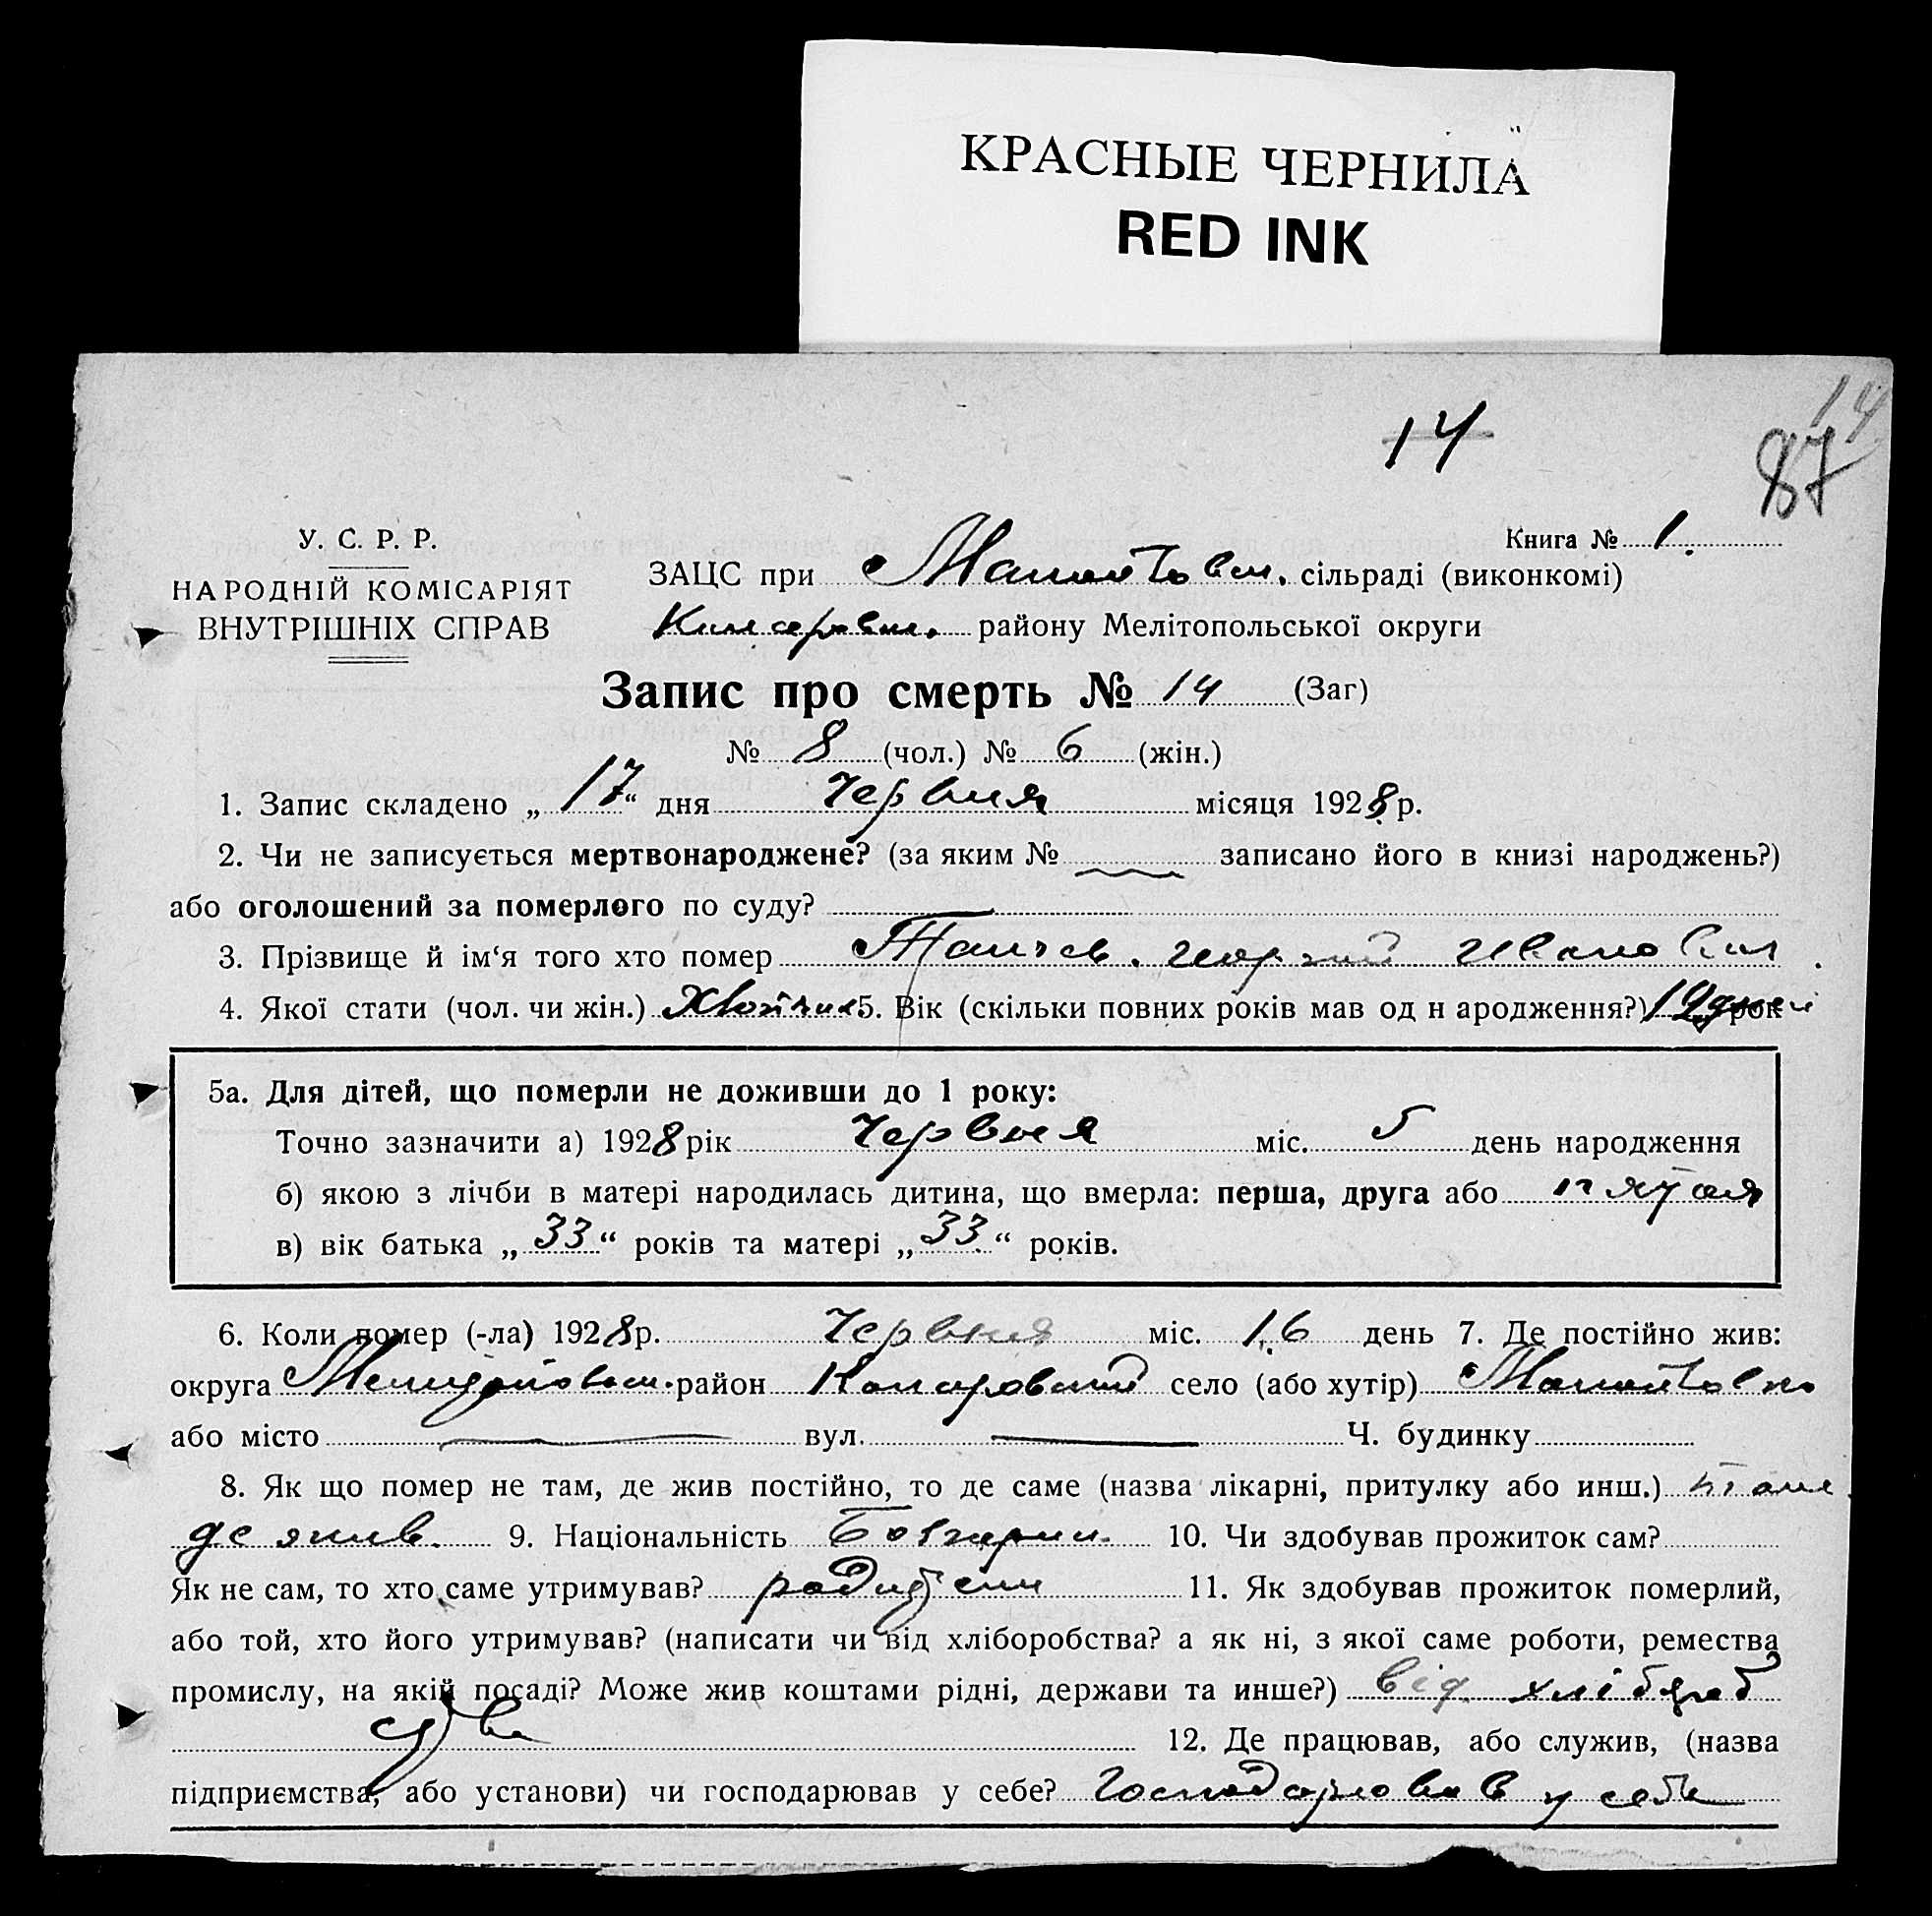 КРАСНЫЕ ЧЕРНИЛА
RED INK
14
14
87
У. С. Р. Р.
НАРОДНІЙ КОМІСАРІЯТ
ВНУТРІШНІХ СПРАВ
Книга № 1.
ЗАЦС при сільраді (виконкомі)
району Мелітопольської округи
Запис про смерть № 14 (Заг)
№ 8 (чол.) № 6 (жін.)
1. Запис складено „17“ дня Червня місяця 1928 р.
2. Чи не записується мертвонароджене? (за яким № записано його в книзі народжень?)
або оголошений за померлого по суду?
3. Прізвище й ім‘я того хто помер Иванович
4. Якої стати (чол. чи жін.) Хлопчик 5. Вік (скільки повних років мав од н ародження?) рок
5а. Для дітей, що померли не доживши до 1 року:
Точно зазначити а) 1928 рік Червня міс. 5 день народження
б) якою з лічби в матері народилась дитина, що вмерла: перша, друга або пятая
в) вік батька „33“ років та матері „33“ років.
6. Коли помер (-ла) 1928 р. Червня міс. 16 день 7. Де постійно жив:
округа район село (або хутір)
або місто вул. Ч. будинку
8. Як що помер не там, де жив постійно, то де саме (назва лікарні, притулку або инш.) там
де жив. 9. Національність 10. Чи здобував прожиток сам?
Як не сам, то хто саме утримував? 11. Як здобував прожиток померлий,
або той, хто його утримував? (написати чи від хліборобства? а як ні, з якої саме роботи, ремества
промислу, на якій посаді? Може жив коштами рідні, держави та инше?) від хлібороб
ства 12. Де працював, або служив, (назва
підприємства, або установи) чи господарював у себе? Господарював у себе